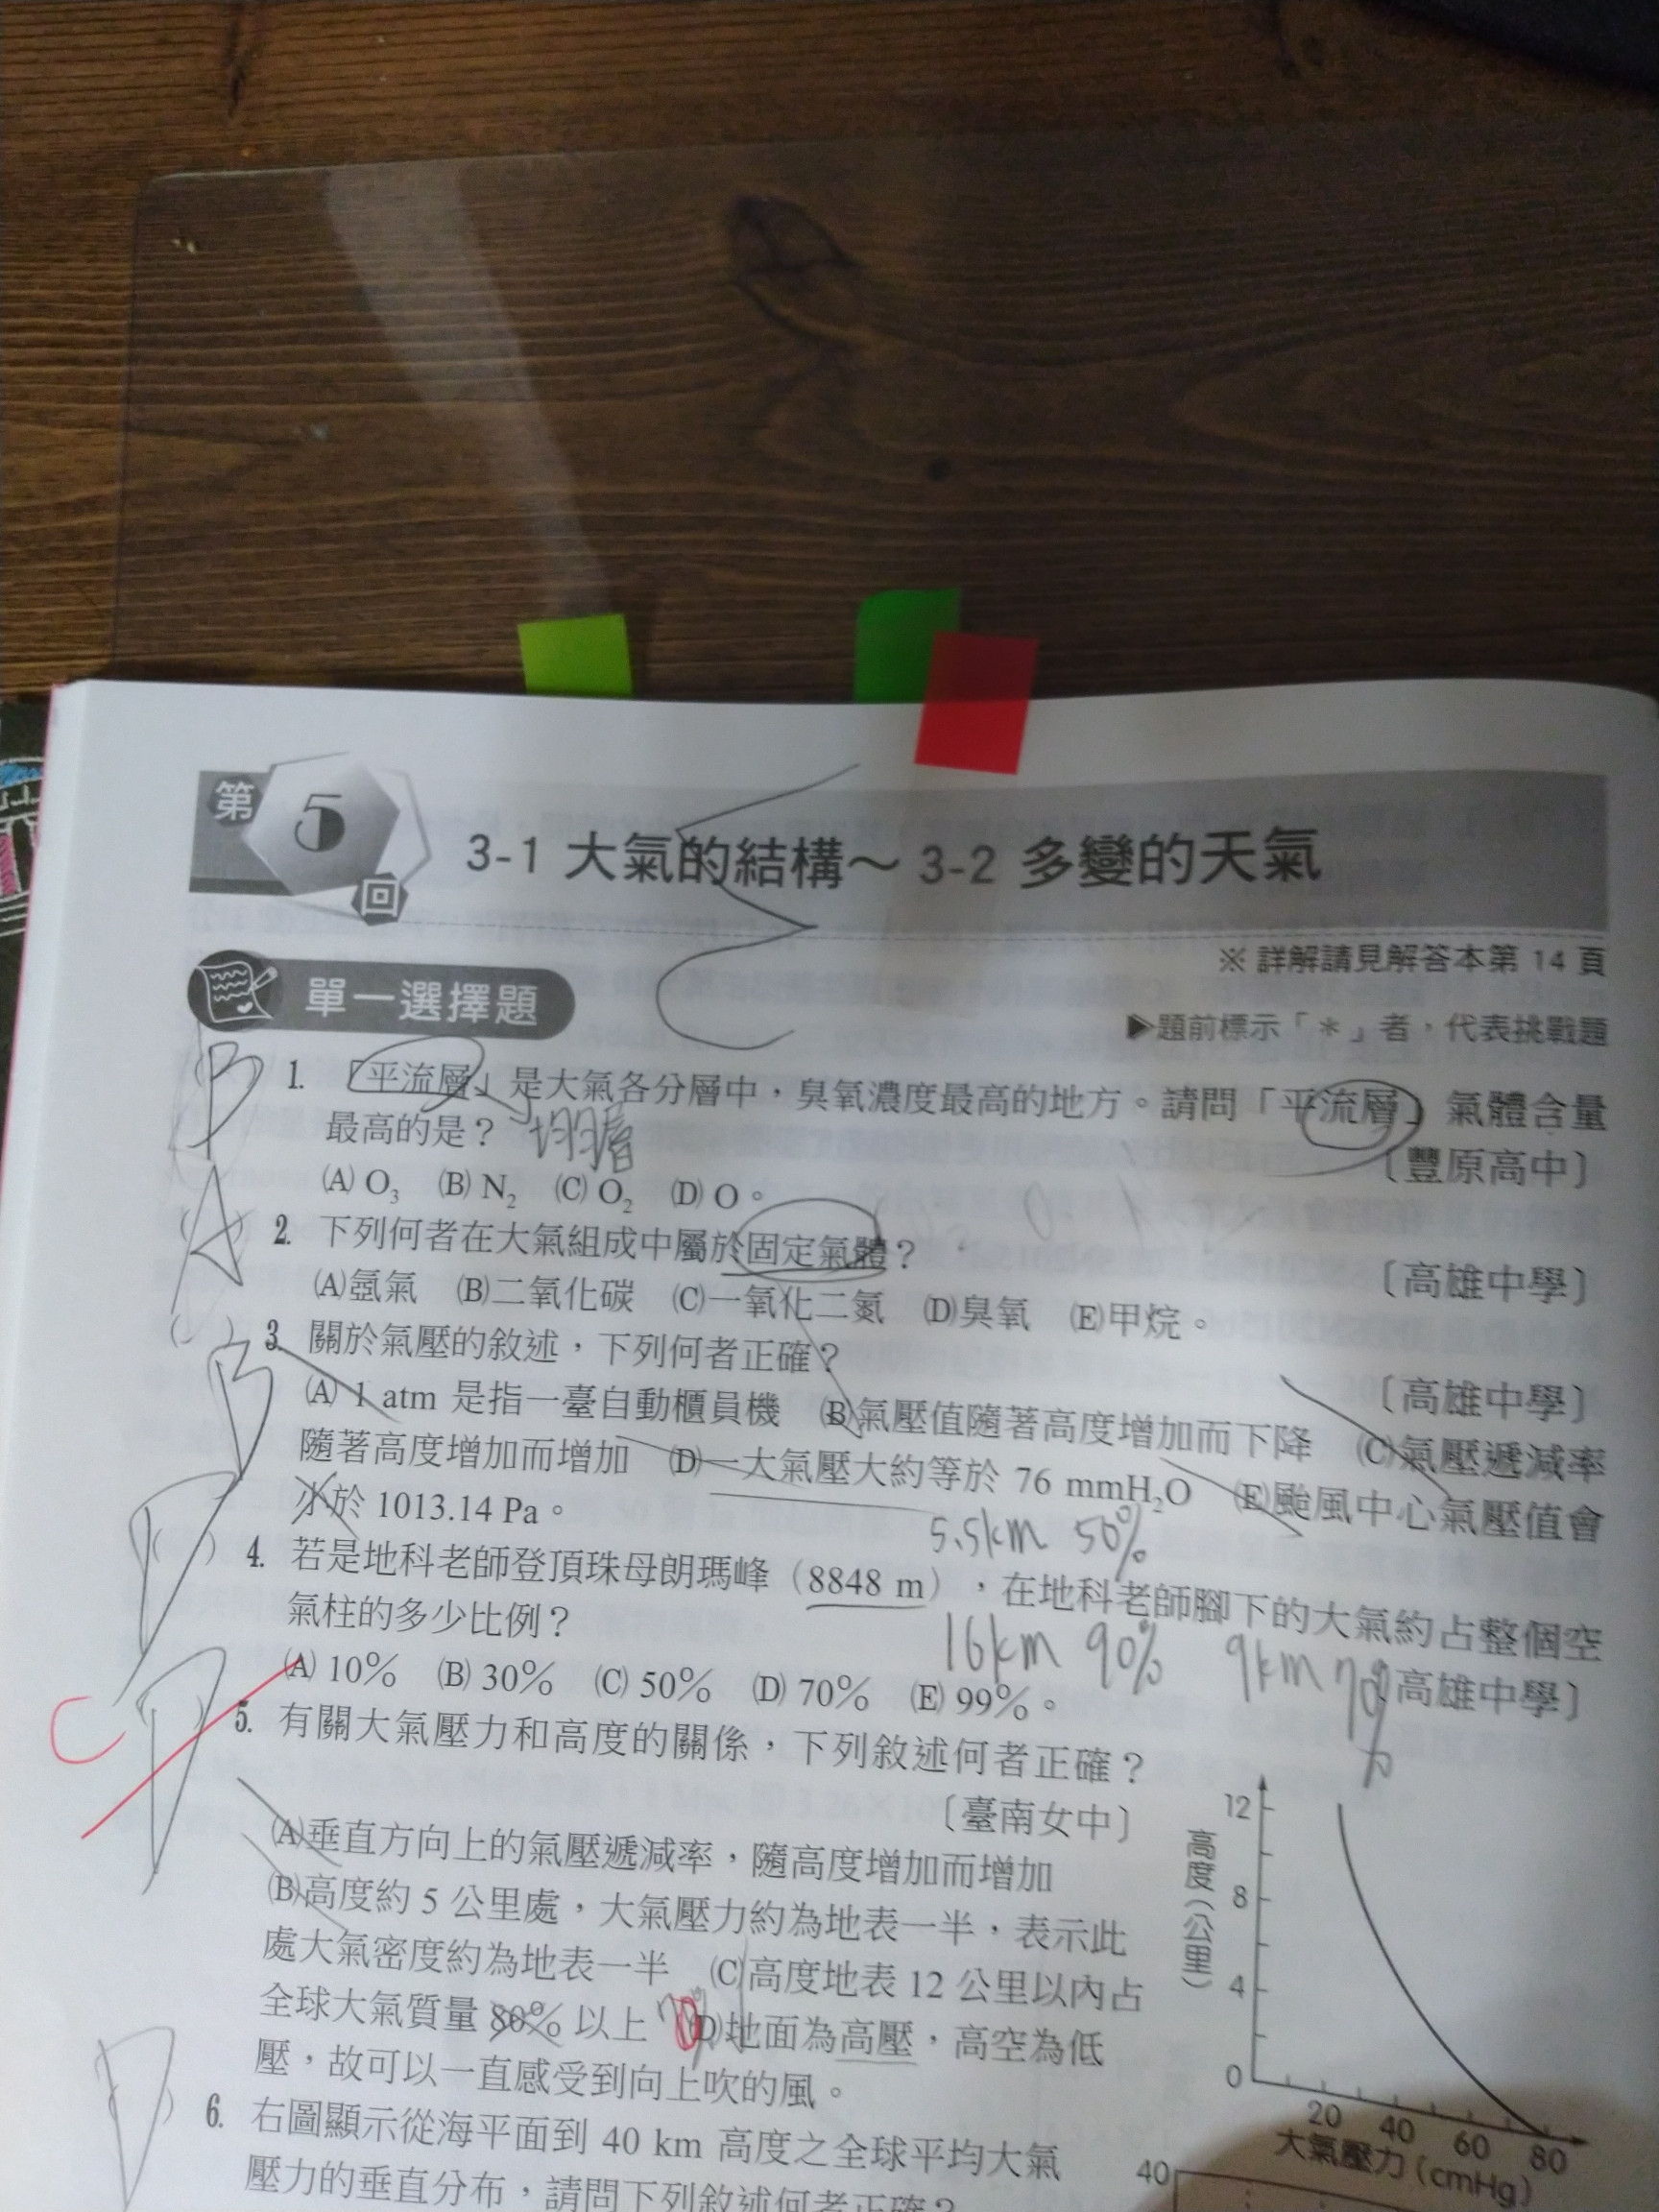 第5回
3-1 大氣的結構～3-2 多變的天氣
※ 詳解請見解答本第 14 頁
單一選擇題
▶題前標示「＊」者，代表挑戰題
B
1. 「平流層」是大氣各分層中，臭氧濃度最高的地方。請問「平流層」氣體含量
最高的是？
〔豐原高中〕
(A) O₃ (B) N₂ (C) O₂ (D) O。
A
( ) 2. 下列何者在大氣組成中屬於固定氣體？
〔高雄中學〕
(A)氬氣 (B)二氧化碳 (C)一氧化二氮 (D)臭氧 (E)甲烷。
B
( ) 3. 關於氣壓的敘述，下列何者正確？
〔高雄中學〕
(A) 1 atm 是指一臺自動櫃員機 (B)氣壓值隨著高度增加而下降 (C)氣壓遞減率
隨著高度增加而增加 (D)一大氣壓大約等於 76 mmH₂O (E)颱風中心氣壓值會
小於 1013.14 Pa。
5.5km 50%
D
( ) 4. 若是地科老師登頂珠母朗瑪峰（8848 m），在地科老師腳下的大氣約占整個空
氣柱的多少比例？
16km 90% 9km 70%
〔高雄中學〕
(A) 10% (B) 30% (C) 50% (D) 70% (E) 99%。
C D
5. 有關大氣壓力和高度的關係，下列敘述何者正確？
〔臺南女中〕
(A)垂直方向上的氣壓遞減率，隨高度增加而增加
(B)高度約 5 公里處，大氣壓力約為地表一半，表示此
處大氣密度約為地表一半 (C)高度地表 12 公里以內占
全球大氣質量 80% 以上 (D)地面為高壓，高空為低
壓，故可以一直感受到向上吹的風。
高度（公里）
12
8
4
0
20 40 60 80
大氣壓力 (cmHg)
D
6. 右圖顯示從海平面到 40 km 高度之全球平均大氣
壓力的垂直分布，請問下列敘述何者正確？
40